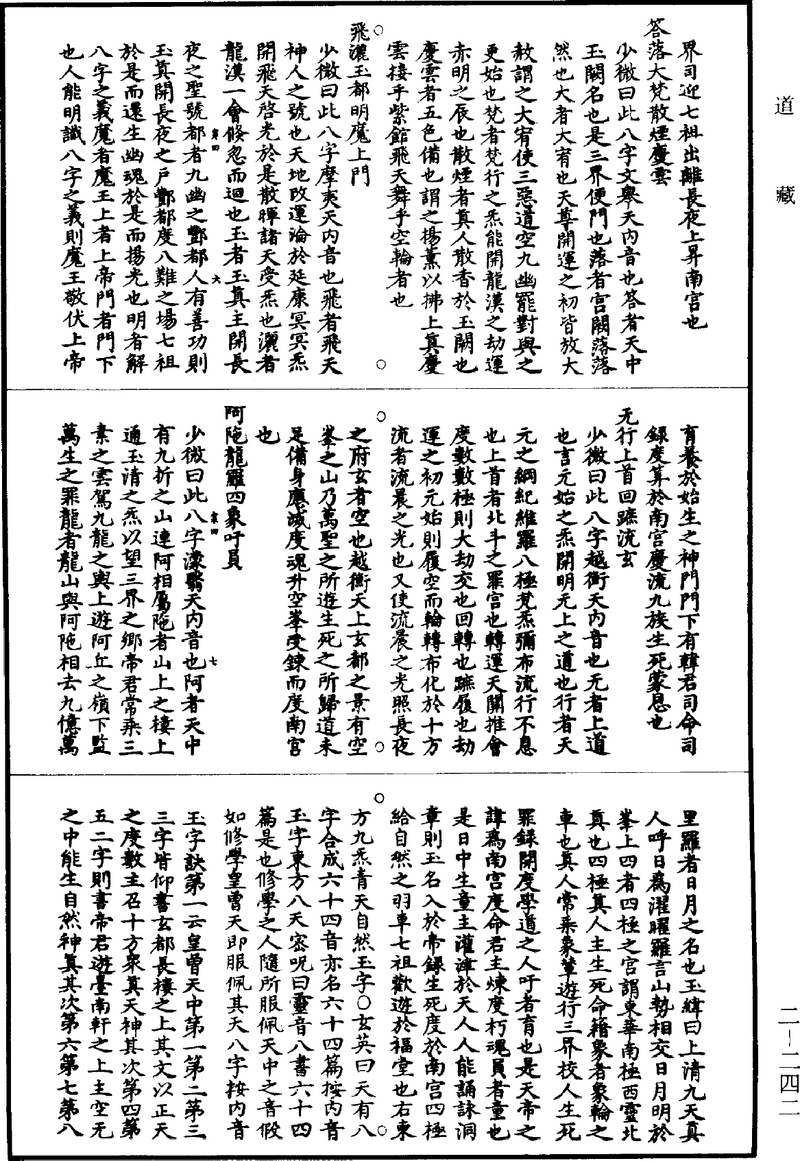 道藏
界司迎七祖出離長夜上昇南宮也
答落大梵散煙慶雲
少微曰此八字文舉天內音也答者天中
玉闕名也是三界便門也落者宮闕落落
然也大者大宥也天尊開運之初皆放大
赦謂之大宥使三惡道空九幽罷對與之
更始也梵者梵行之炁能開龍漢之劫運
赤明之辰也散煙者真人散香於玉闕也
慶雲者五色備也謂之揚薰以拂上真慶
雲棲乎紫館飛天舞乎空輪者也
飛灑玉都明魔上門
少微曰此八字摩夷天內音也飛者飛天
神人之號也天地改運淪於延康冥冥炁
開飛天啓光於是散暉諸天受炁也灑者
龍漢一會倏忽而迴也玉者玉真主開長
夜之聖號都者九幽之酆都人有善功則
玉真開長夜之戶酆都度八難之場七祖
於是而還生幽魂於是而揚光也明者解
八字之義魔者魔王上者上帝門者門下
也人能明識八字之義則魔王敬伏上帝
育養於始生之神門門下有韓君司命司
錄度算於南宮慶流九族生死蒙恩也
无行上首回蹠流玄
少微曰此八字越衡天內音也无者上道
也言元始之炁開明无上之道也行者天
元之綱紀維羅八極梵炁彌布流行不息
也上首者北斗之罪宮也轉運天關推會
度數數極則大劫交也回轉也蹠履也劫
運之初元始則履空而輪轉布化於十方
流者流晨之光也又使流晨之光照長夜
之府玄者空也越衡天上玄都之景有空
峯之山乃萬聖之所遊生死之所歸道未
足備身應滅度魂升空峯受鍊而度南宮
也
阿陁龍羅四象吁員
少微曰此八字濛翳天內音也阿者天中
有九折之山連阿相屬陁者山上之樓上
通玉清之炁以望三界之鄉帝君常乘三
素之雲駕九龍之輿上遊阿丘之嶺下監
萬生之罪龍者龍山與阿陁相去九億萬
里羅者日月之名也玉緯曰上清九天真
人呼日為濯曜羅言山勢相交日月明於
峯上四者四極之宮謂東華南極西靈北
真也四極真人主生死命籍象者象輪之
車也真人常乘象輦遊行三界校人生死
罪錄開度學道之人吁者育也是天帝之
諱為南宮度命君主煉度朽魂員者童也
是日中生童主灌津於天人人能誦詠洞
章則玉名入於帝錄生死度於南宮四極
給自然之羽車七祖歡遊於福堂也右東
方九炁青天自然玉字○玄英曰天有八
字合成六十四音亦名六十四篇按內音
玉字東方八天密呪曰靈音八書六十四
篇是也修學之人隨所服佩天中之音假
如修學皇曾天即服佩其天八字按內音
玉字訣第一云皇曾天中第一第二第三
三字皆仰書玄都長樓之上其文以正天
之度數主召十方眾真天神其次第四第
五二字則書帝君遊臺南軒之上主空无
之中能生自然神真其次第六第七第八
二－二四二